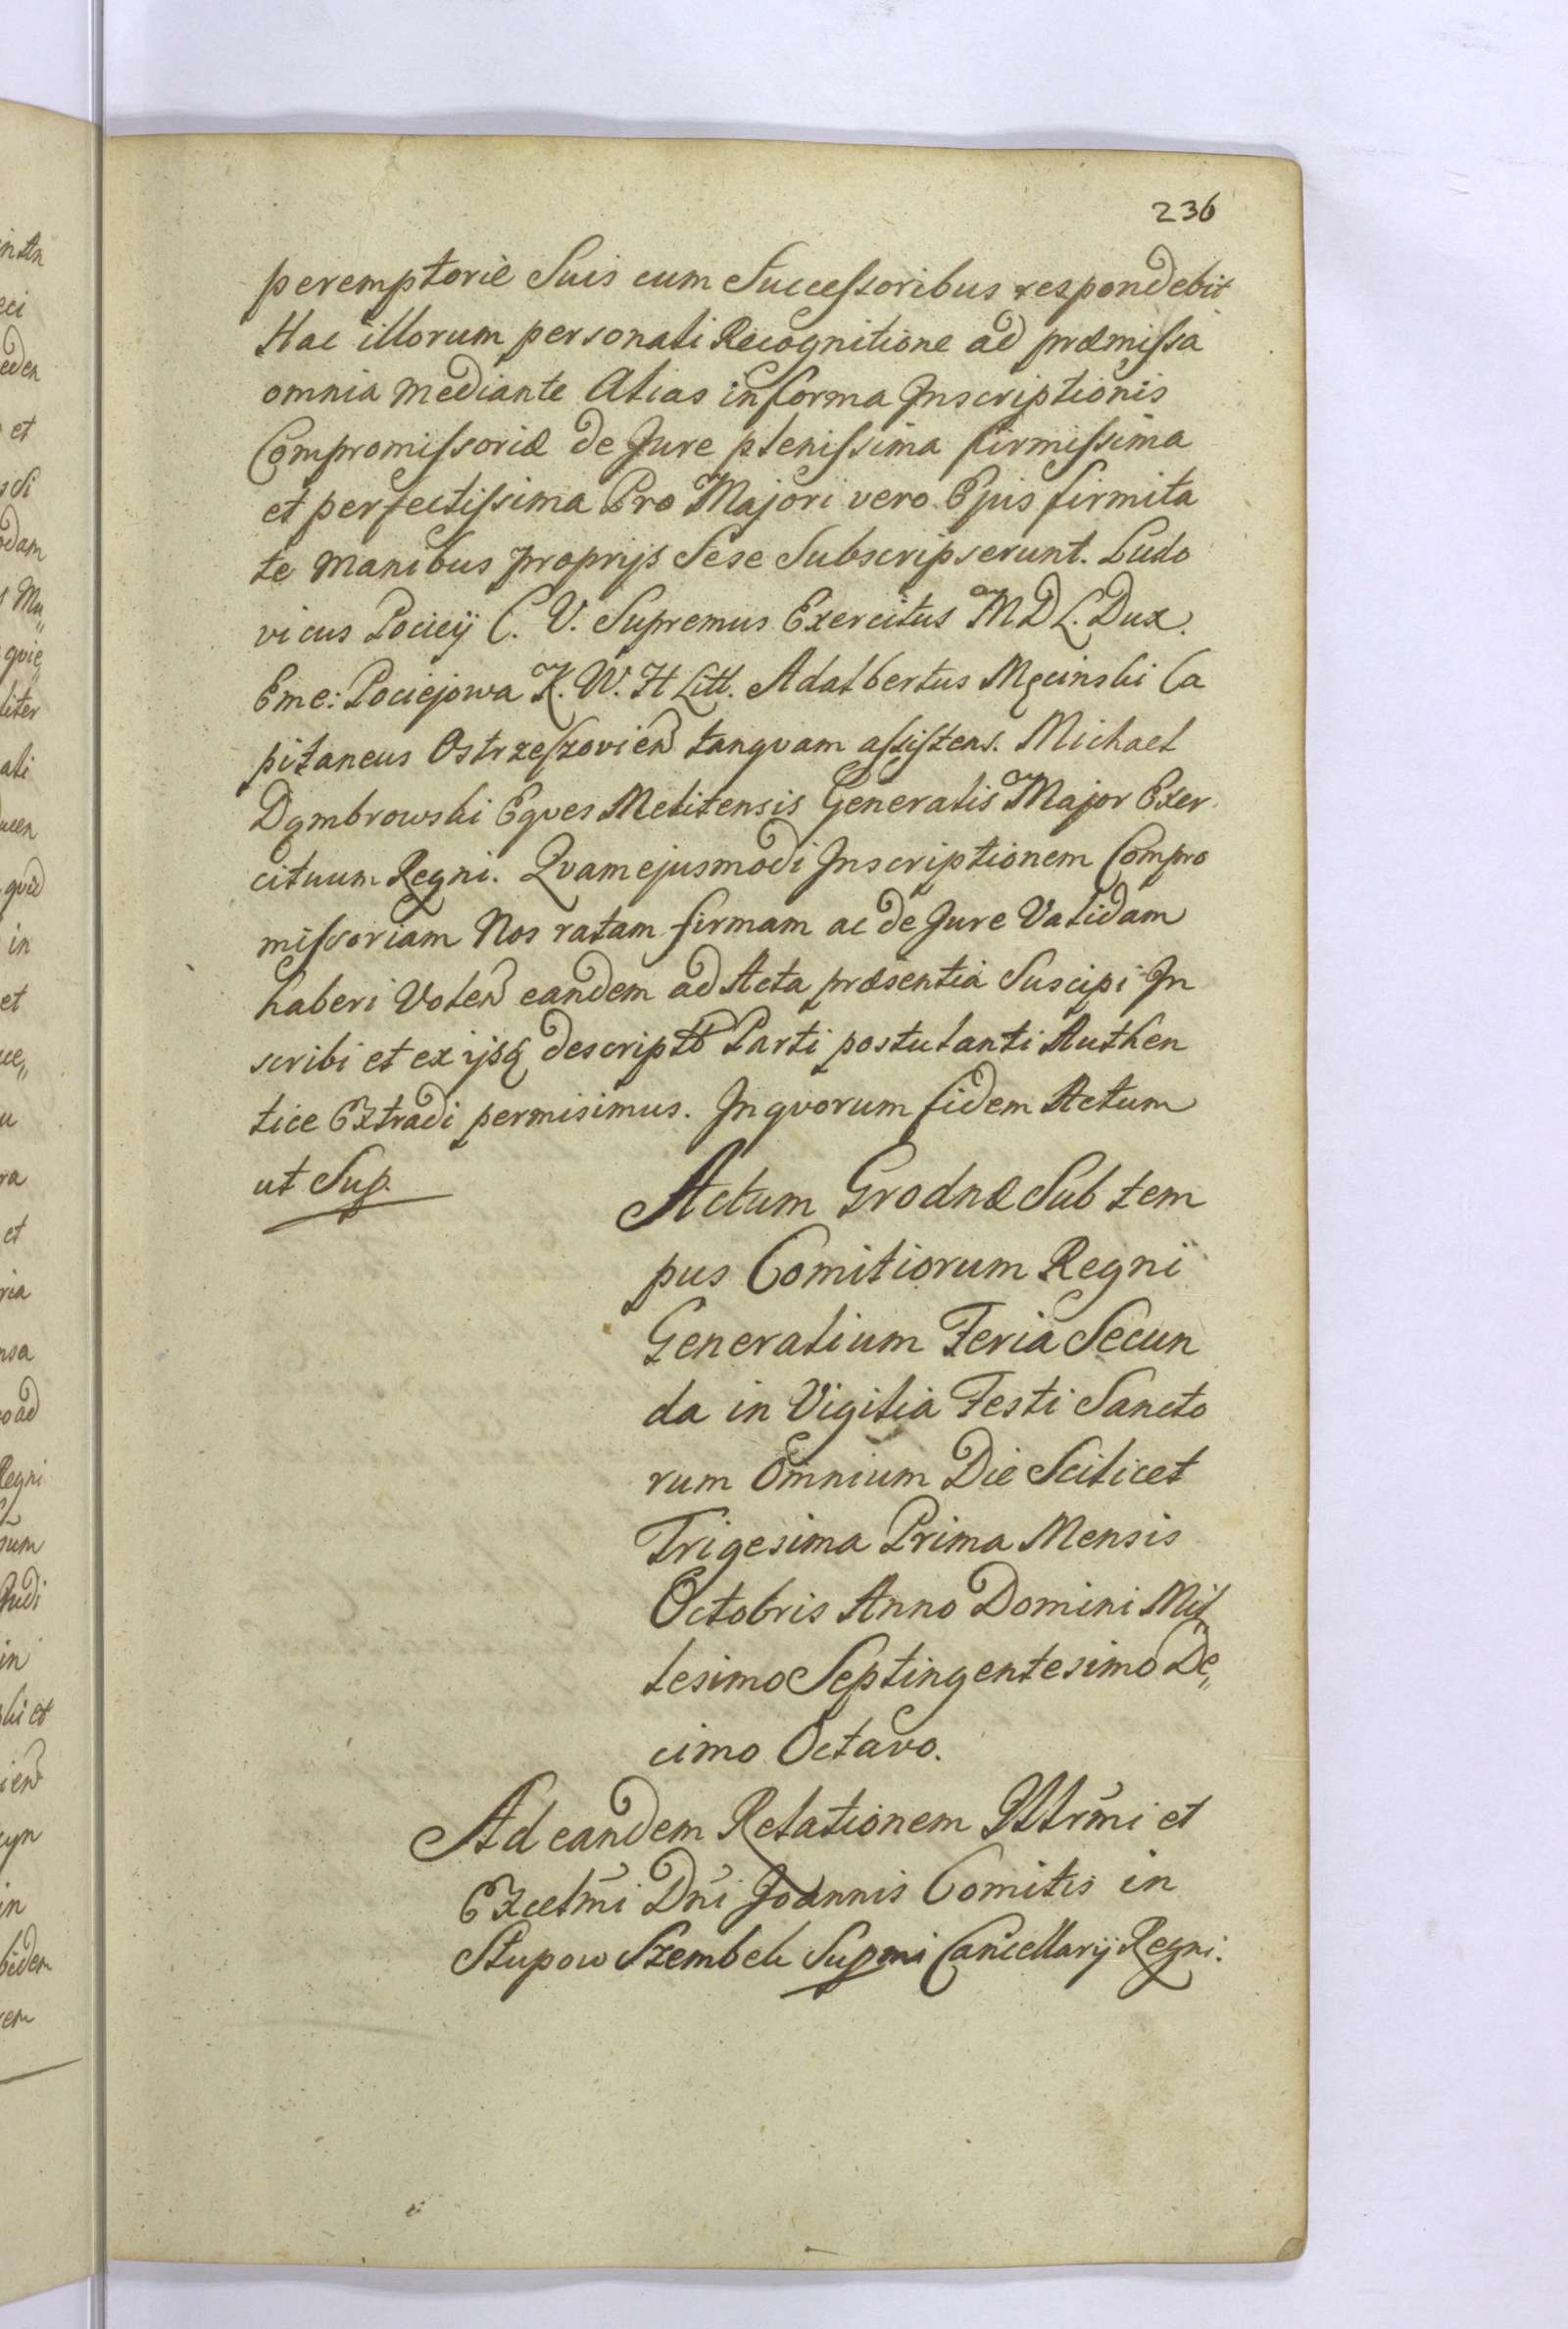 236
peremptorie Suis cum Successoribus respondebit
Hac illorum personali Recognitione ad præmissa
omnia mediante Alias in forma Inscriptionis
Compromissoriæ de Jure plenissima firmissima
et perfectissima Pro Majori vero Ejus firmita
te manibus proprijs Sese Subscripserunt. Ludo
vicus Pociey C. V. Supremus Exercitus M D L. Dux.
Eme: Pociejowa K. W. H Litt. Adalbertus Męcinski Ca
pitaneus Ostrzeszovien tanqvam assistens. Michael
Dąmbrowski Eqves Melitensis Generalis Major Exer
cituum Regni. Qvam ejusmodi Inscriptionem Compro
missoriam Nos ratam firmam ac de Jure Validam
haberi Volen eandem ad Acta præsentia Suscipi In
scribi et ex ijsq descriptb Parti postulanti Authen
tice Extradi permisimus. In qvorum fidem Actum
ut Sup.
Actum Grodnæ Sub tem
pus Comitiorum Regni
Generalium Feria Secun
da in Vigilia Festi Sancto
rum Omnium Die Scilicet
Trigesima Prima Mensis
Octobris Anno Domini Mil
lesimo Septingentesimo De„
cimo Octavo.
Ad eandem Relationem Illrmi et
Excelmi Dni Joannis Comitis in
Słupow Szembek Supmi Cancellarij Regni.